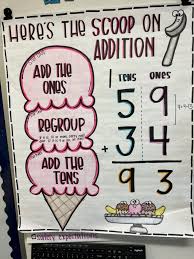 HERE'S THE SCOOP ON
ADDITION
ADD THE
ONES
REGROUP
ADD THE
TENS
TENS ONES
1
5 9
+ 3 4
9 3